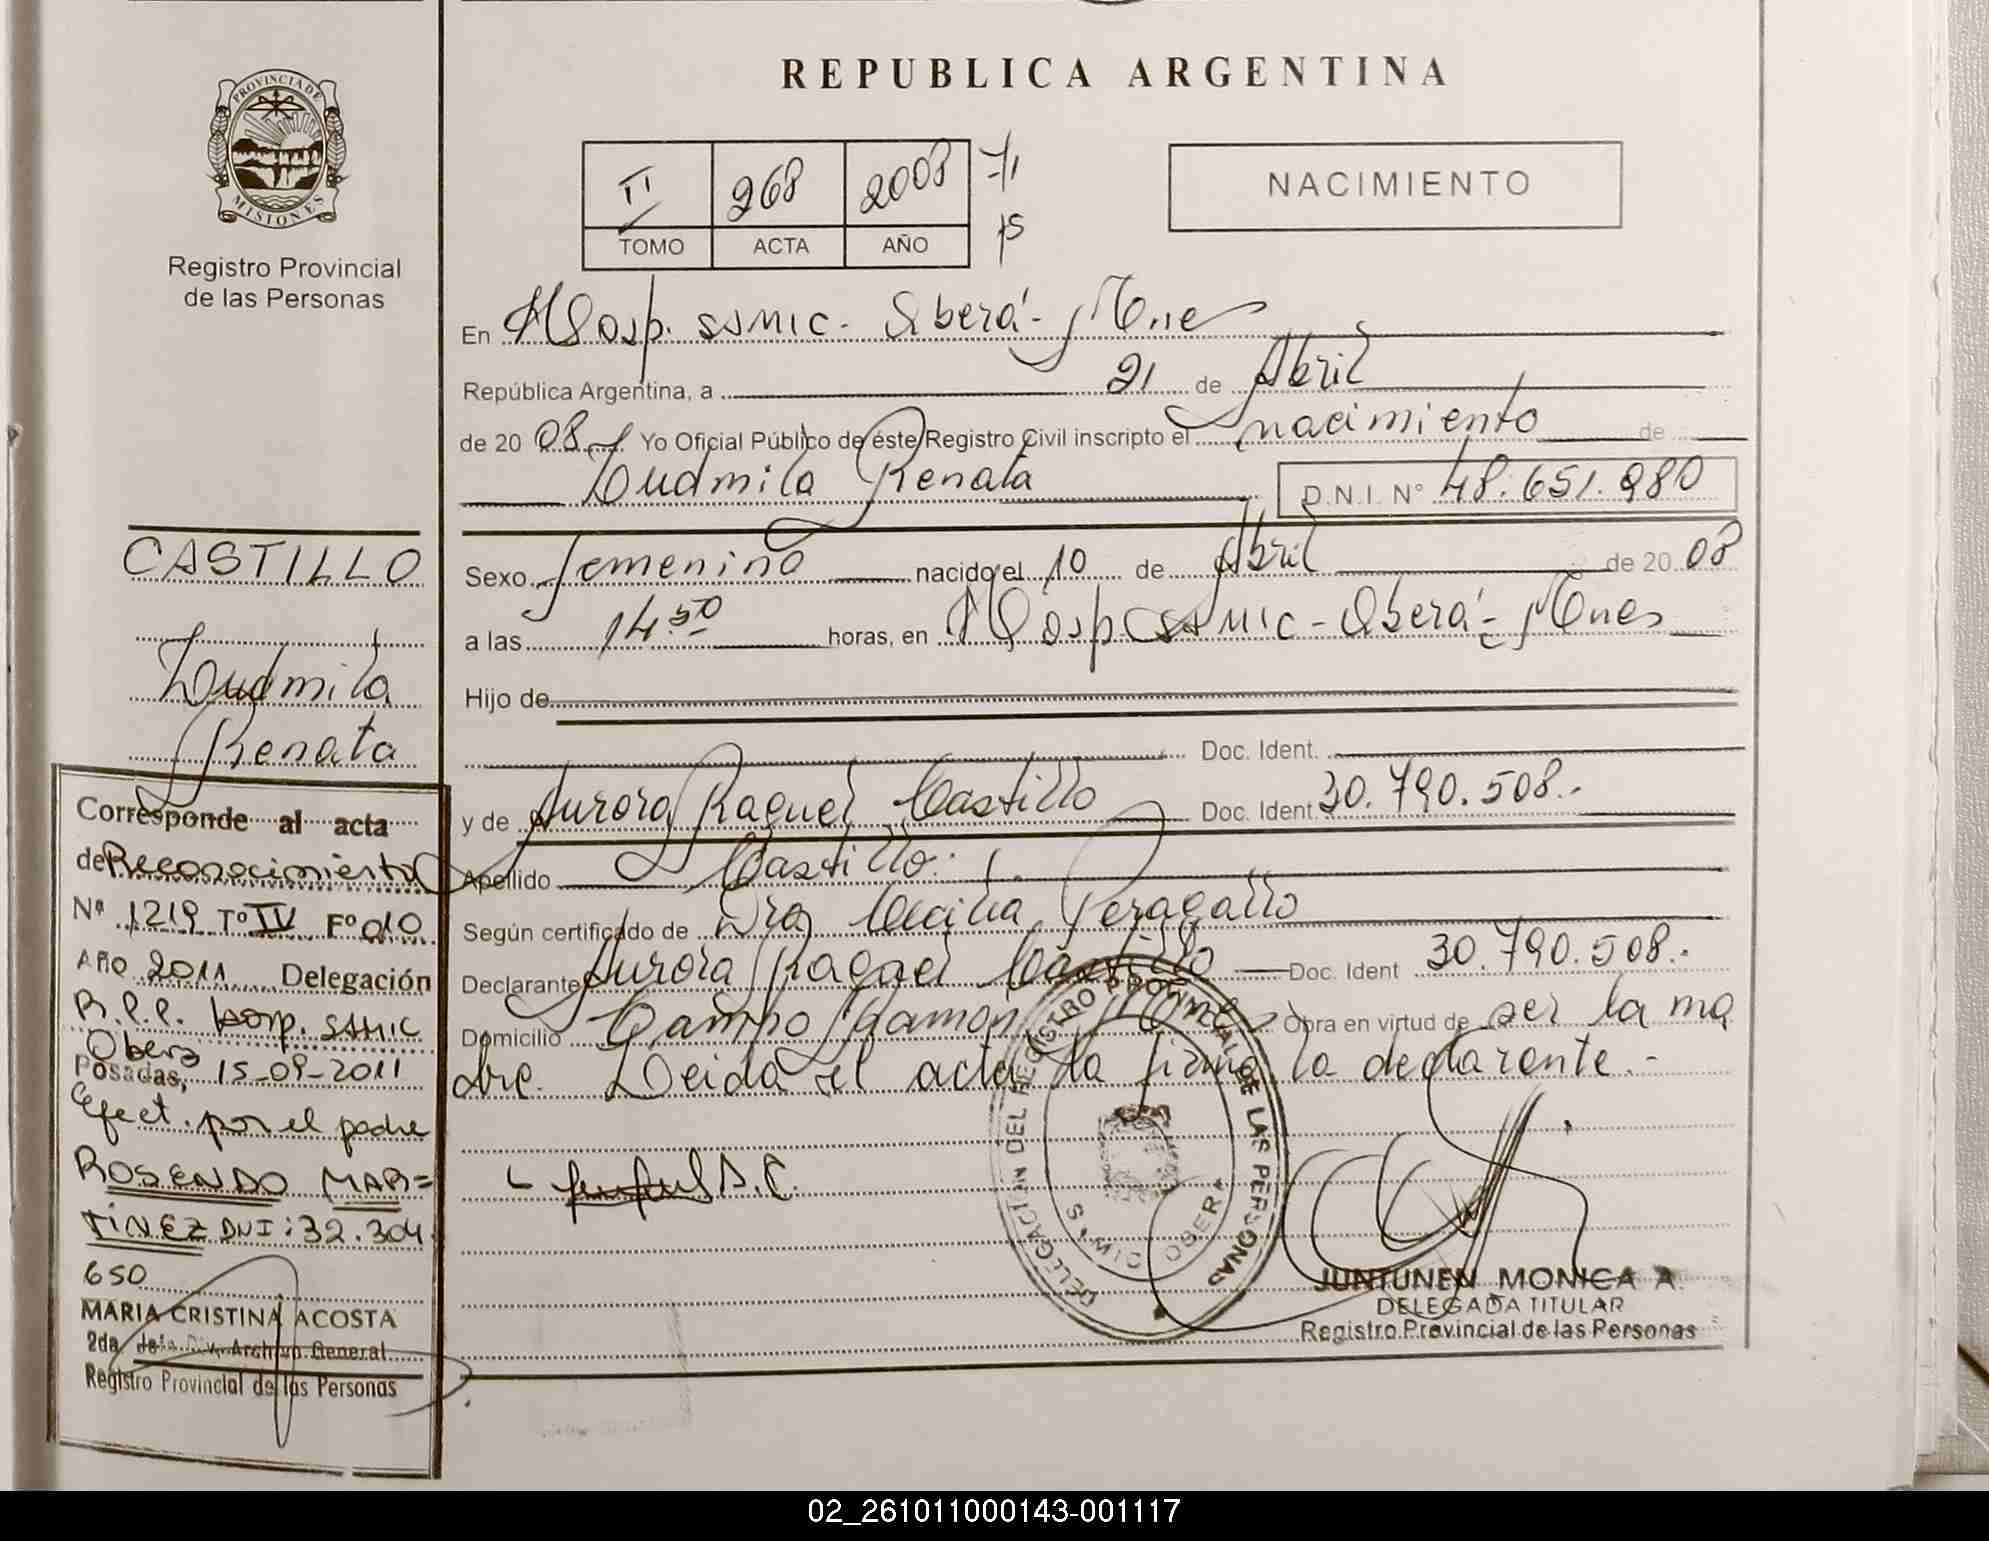 REPUBLICA ARGENTINA
PROVINCIA DE
MISIONES
Registro Provincial
de las Personas
II 268 2008
TOMO ACTA AÑO
NACIMIENTO
En Hosp. SAMIC - Oberá - Mnes
República Argentina, a 21 de Abril
de 20 08 Yo Oficial Público de éste Registro Civil inscripto el nacimiento de
Ludmila Renata D.N.I. Nº 48.651.980
Sexo femenino nacido el 10 de Abril de 20 08
a las 14.50 horas, en Hosp SAMIC - Oberá - Mnes
Hijo de
Doc. Ident.
y de Aurora Raquel Castillo Doc. Ident. 30.790.508.-
Apellido Castillo.
Según certificado de Dra Cecilia Peragallo
Declarante Aurora Raquel Castillo Doc. Ident 30.790.508.-
Domicilio Campo Ramón Mnes Obra en virtud de ser la ma
dre. Leida el acta la firma la declarante.-
A.C.
DELEGACION DEL REGISTRO PROVINCIAL DE LAS PERSONAS
OBERA
JUNTUNEN MONICA A.
DELEGADA TITULAR
Registro Provincial de las Personas
CASTILLO
Ludmila
Renata
Corresponde al acta
de Reconocimiento
Nº 1219 Tº IV Fº 010
Año 2011 Delegación
R.P.P. hosp. SAMIC
Oberá
Posadas, 15-09-2011
Efect. por el padre
ROSENDO MAR=
TINEZ DNI: 32.304.
650
MARIA CRISTINA ACOSTA
2da Jefa Div. Archivo General
Registro Provincial de las Personas
02_261011000143-001117